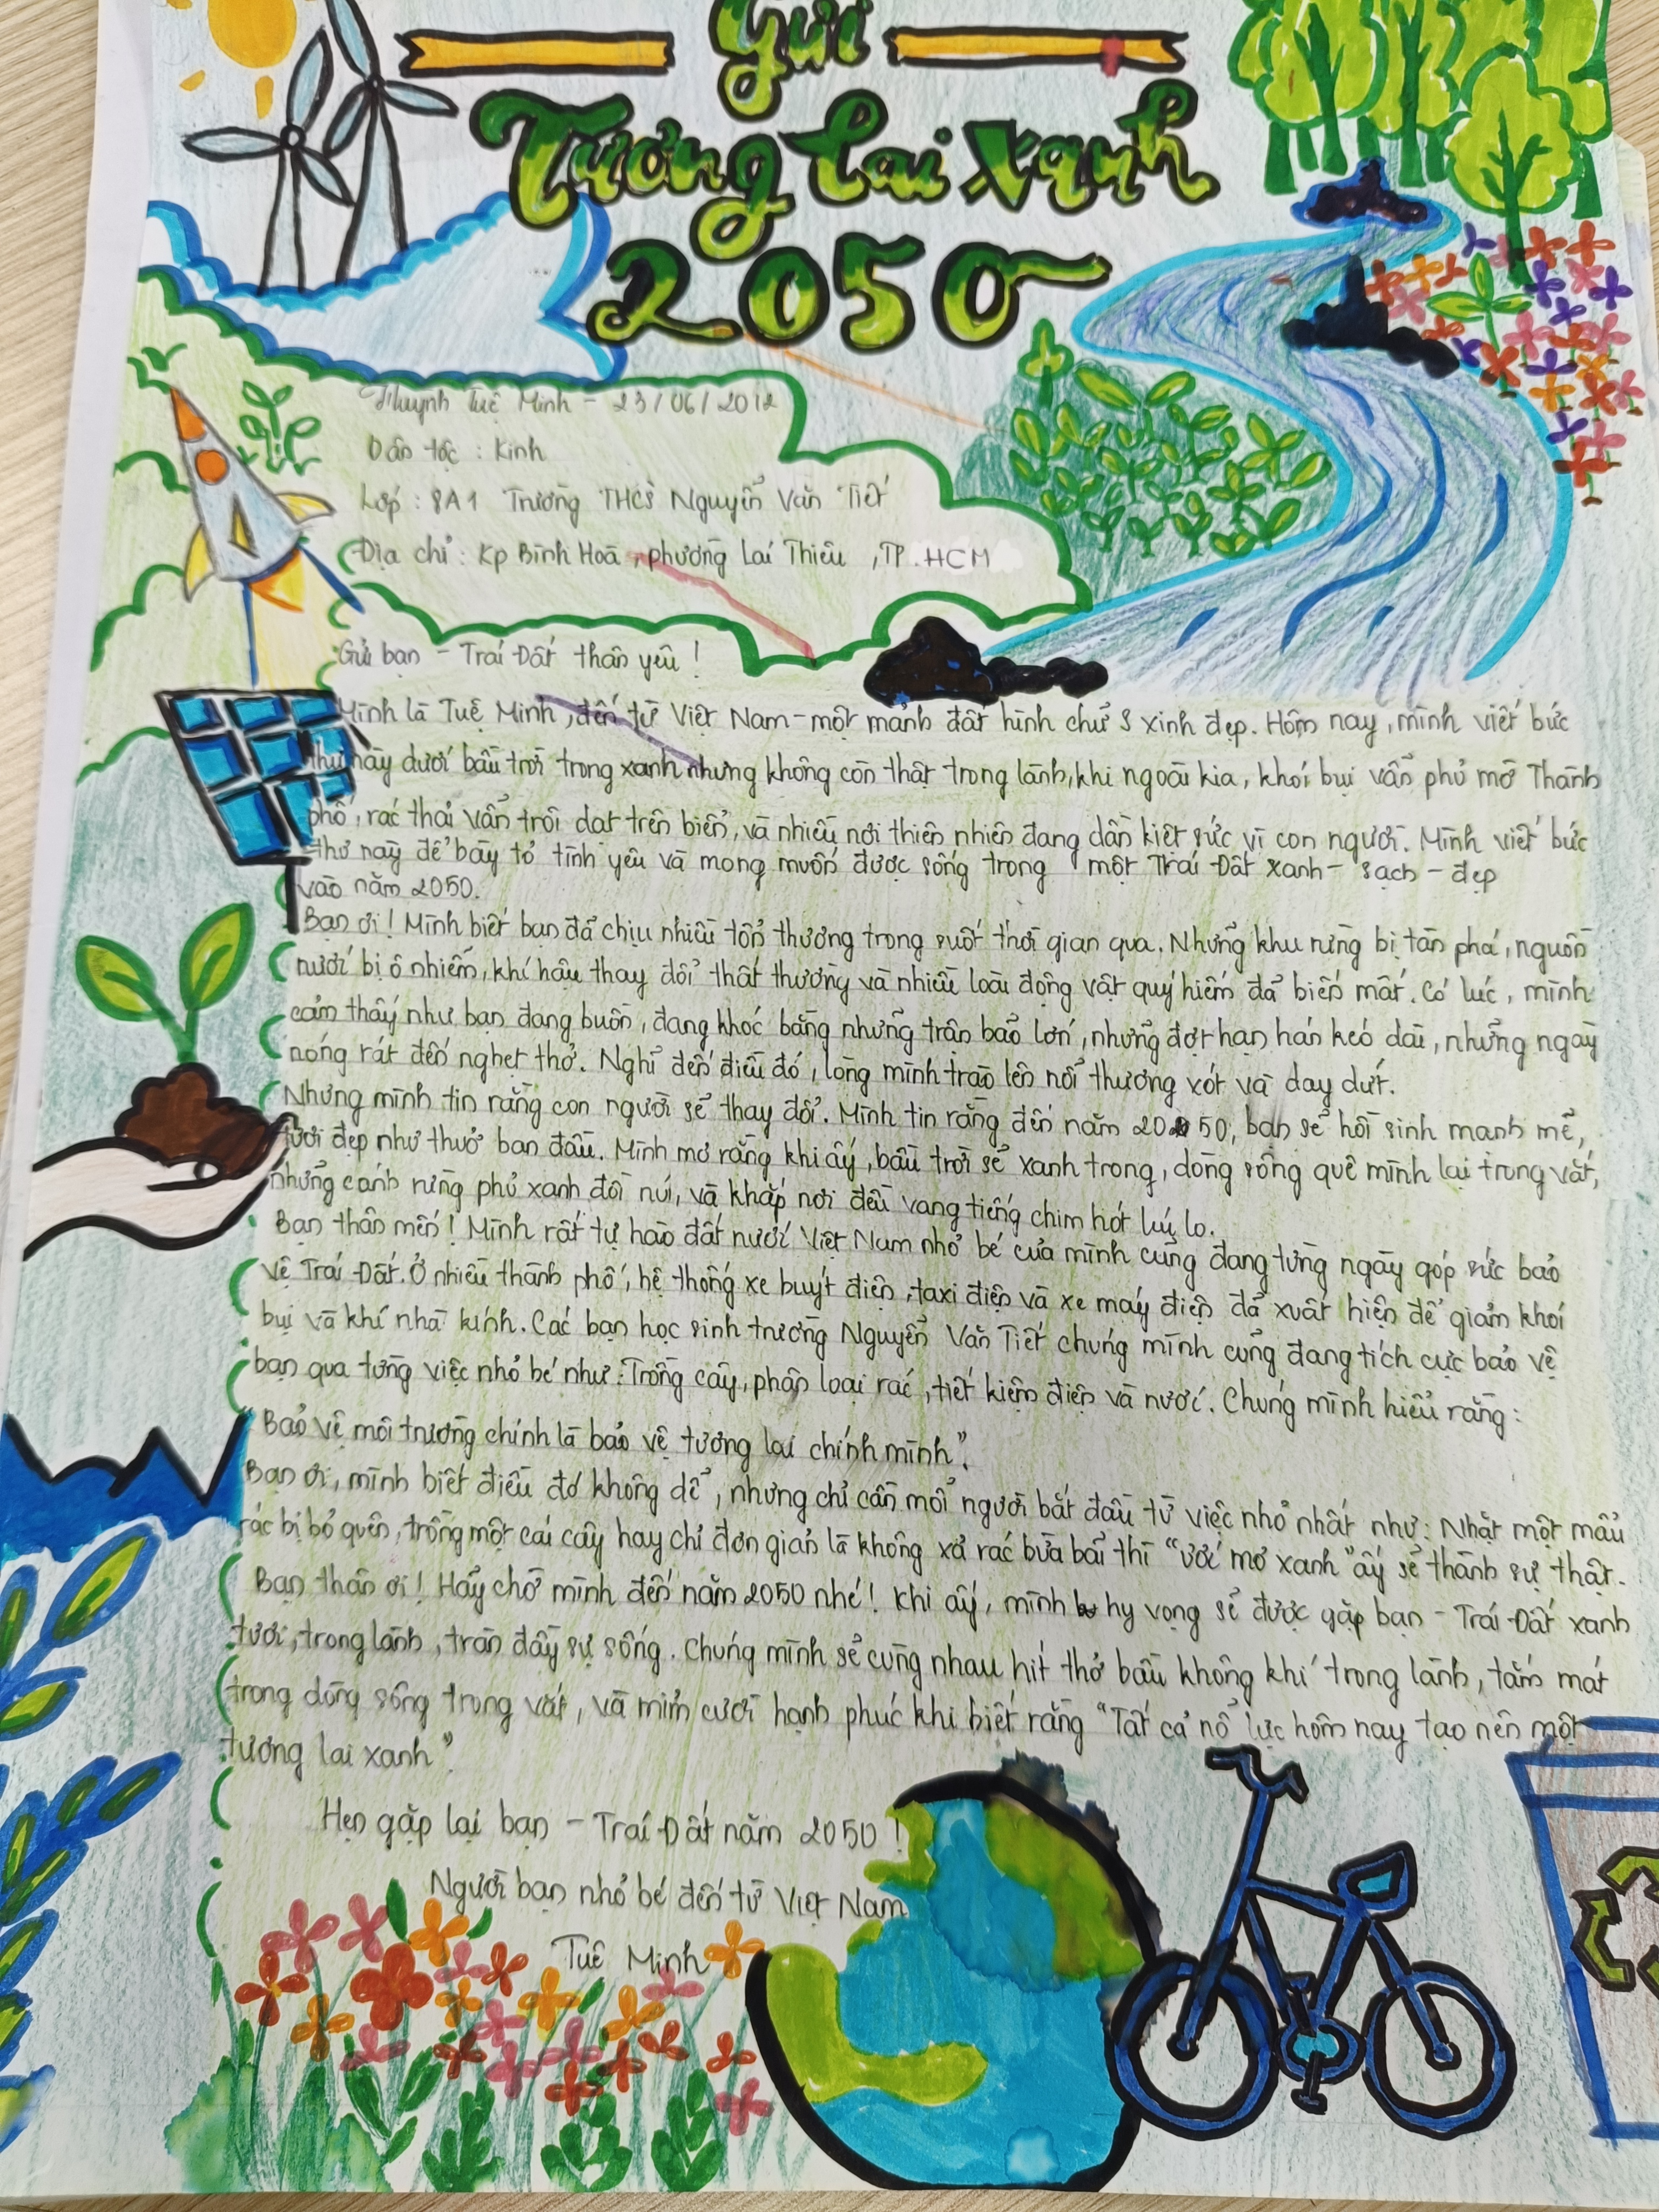 Gửi
Tương Lai Xanh
2050
Huỳnh Tuệ Minh - 23/06/2012
Dân tộc : Kinh
Lớp : 8A1 Trường THCS Nguyễn Văn Tiết
Địa chỉ : Kp Bình Hoà , phường Lái Thiêu , TP.HCM
Gửi bạn - Trái Đất thân yêu !
Mình là Tuệ Minh, đến từ Việt Nam - một mảnh đất hình chữ S xinh đẹp. Hôm nay, mình viết bức
thư này dưới bầu trời trong xanh nhưng không còn thật trong lành, khi ngoài kia, khói bụi vẫn phủ mờ Thành
phố, rác thải vẫn trôi dạt trên biển, và nhiều nơi thiên nhiên đang dần kiệt sức vì con người. Mình viết bức
thư này để bày tỏ tình yêu và mong muốn được sống trong một Trái Đất xanh - sạch - đẹp
vào năm 2050.
Bạn ơi! Mình biết bạn đã chịu nhiều tổn thương trong suốt thời gian qua. Những khu rừng bị tàn phá, nguồn
nước bị ô nhiễm, khí hậu thay đổi thất thường và nhiều loài động vật quý hiếm đã biến mất. Có lúc, mình
cảm thấy như bạn đang buồn, đang khóc bằng những trận bão lớn, những đợt hạn hán kéo dài, những ngày
nóng rát đến nghẹt thở. Nghĩ đến điều đó, lòng mình trào lên nỗi thương xót và day dứt.
Nhưng mình tin rằng con người sẽ thay đổi. Mình tin rằng đến năm 2050, bạn sẽ hồi sinh mạnh mẽ,
tươi đẹp như thuở ban đầu. Mình mơ rằng khi ấy, bầu trời sẽ xanh trong, dòng sông quê mình lại trong vắt,
những cánh rừng phủ xanh đồi núi, và khắp nơi đều vang tiếng chim hót líu lo.
Bạn thân mến! Mình rất tự hào đất nước Việt Nam nhỏ bé của mình cũng đang từng ngày góp sức bảo
vệ Trái Đất. Ở nhiều thành phố, hệ thống xe buýt điện, taxi điện và xe máy điện đã xuất hiện để giảm khói
bụi và khí nhà kính. Các bạn học sinh trường Nguyễn Văn Tiết chúng mình cũng đang tích cực bảo vệ
bạn qua từng việc nhỏ bé như : Trồng cây, phân loại rác, tiết kiệm điện và nước. Chúng mình hiểu rằng :
"Bảo vệ môi trường chính là bảo vệ tương lai chính mình".
Bạn ơi, mình biết điều đó không dễ, nhưng chỉ cần mỗi người bắt đầu từ việc nhỏ nhất như : Nhặt một mẩu
rác bị bỏ quên, trồng một cái cây hay chỉ đơn giản là không xả rác bừa bãi thì "ước mơ xanh" ấy sẽ thành sự thật.
Bạn thân ơi! Hãy chờ mình đến năm 2050 nhé! Khi ấy, mình hy vọng sẽ được gặp bạn - Trái Đất xanh
tươi, trong lành, tràn đầy sự sống. Chúng mình sẽ cùng nhau hít thở bầu không khí trong lành, tắm mát
trong dòng sông trong vắt, và mỉm cười hạnh phúc khi biết rằng "Tất cả nỗ lực hôm nay tạo nên một
tương lai xanh".
Hẹn gặp lại bạn - Trái Đất năm 2050 !
Người bạn nhỏ bé đến từ Việt Nam
Tuệ Minh